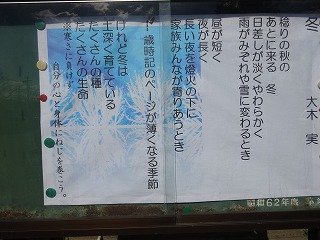 冬　大木　実
稔りの秋の
あとに来る　冬
日差しが淡くやわらかく
雨がみぞれや雪に変わるとき
昼が短く
夜が長く
長い夜を燈火の下に
家族みんなが寄りあうとき
歳時記のページが薄くなる季節
けれど冬は
土深く育てている
たくさんの種
たくさんの生命
寒さに負けず、
自分の心と身体にねじを巻こう。
昭和62年度